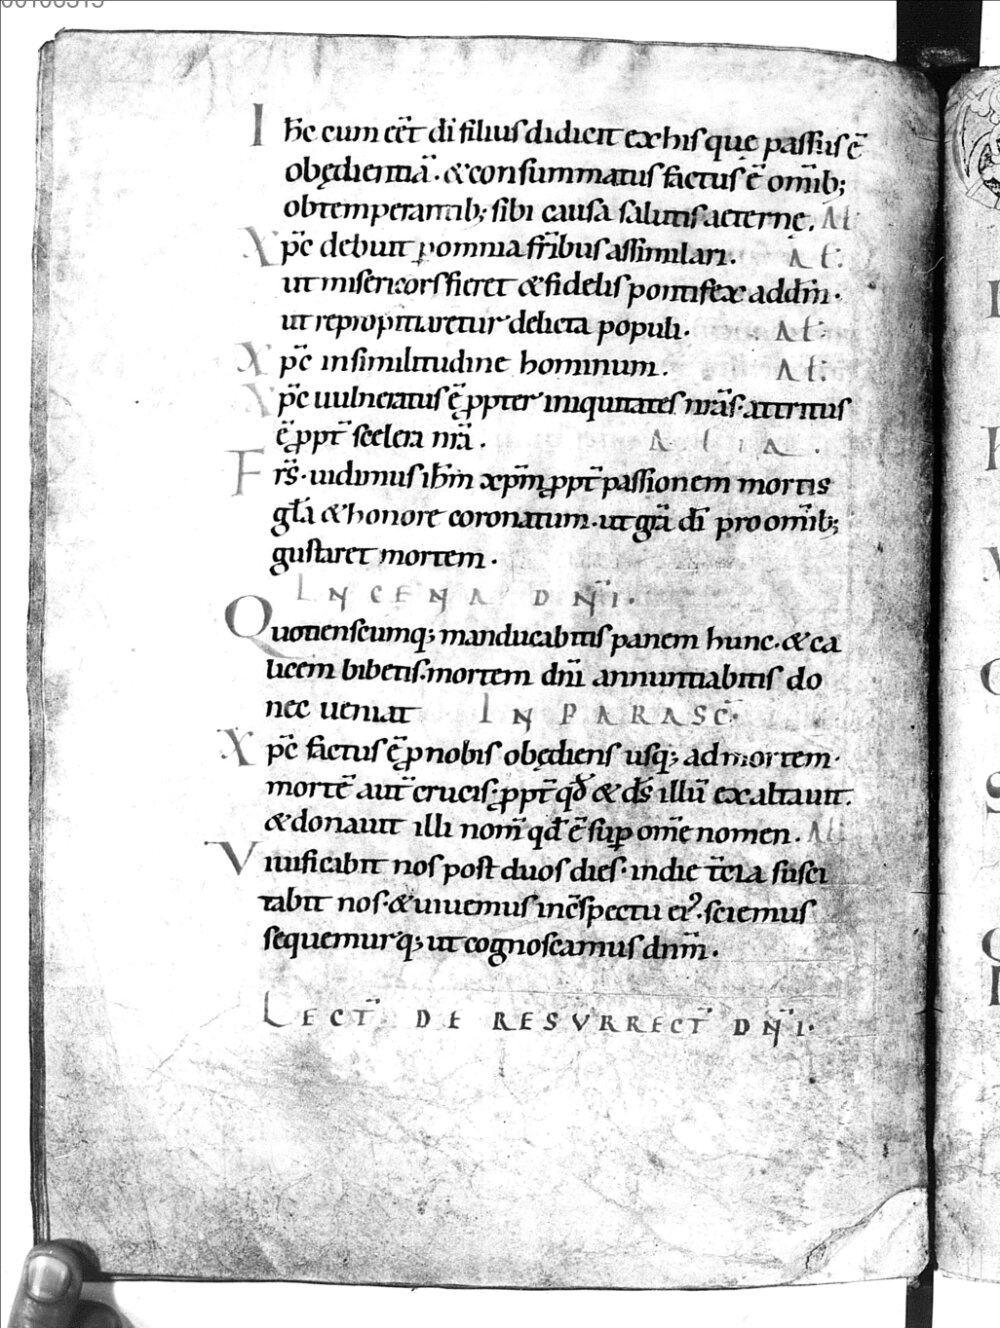 Ihc cum cēt di filius didicit ex his quę passus ē
obędientiā. & consummatus factus ē om̄ib;
obtemperantib; sibi causa salutis aeternę. AL
Xp̄c debuit p omnia fr̄ibus assimilari. AL:
ut misericors fieret & fidelis pontifex ad dm̄.
ut repropitiaretur delicta populi. AL:
Xp̄c in similitudine hominum. AL:
Xp̄c uulneratus ē ppter iniquitates nr̄as. attritus
ē ppt̄ scelera nr̄a. ALIA.
Fr̄s. uidimus ihm̄ xpm̄ ppt̄ passionem mortis
gl̄a & honore coronatum. ut gr̄a dī pro om̄ib;
gustaret mortem.
IN CENA DN̄I.
Quotienscumq; manducabitis panem hunc. & ca
licem bibetis. mortem dn̄i annuntiabitis do
nec ueniat IN PARASC̄.
Xp̄c factus ē p nobis obędiens usq; ad mortem.
mortē aut̄ crucis. ppt̄ qd̄ & ds̄ illū exaltauit.
& donauit illi nom̄ qd̄ ē sup om̄e nomen. AL:
Viuificabit nos post duos dies. in die t̄cia susci
tabit nos. & uiuemus in c̄spectu ei'. sciemus
sequemurq; ut cognoscamus dnm̄.
LECT̄ DE RESVRRECT̄ DN̄I.